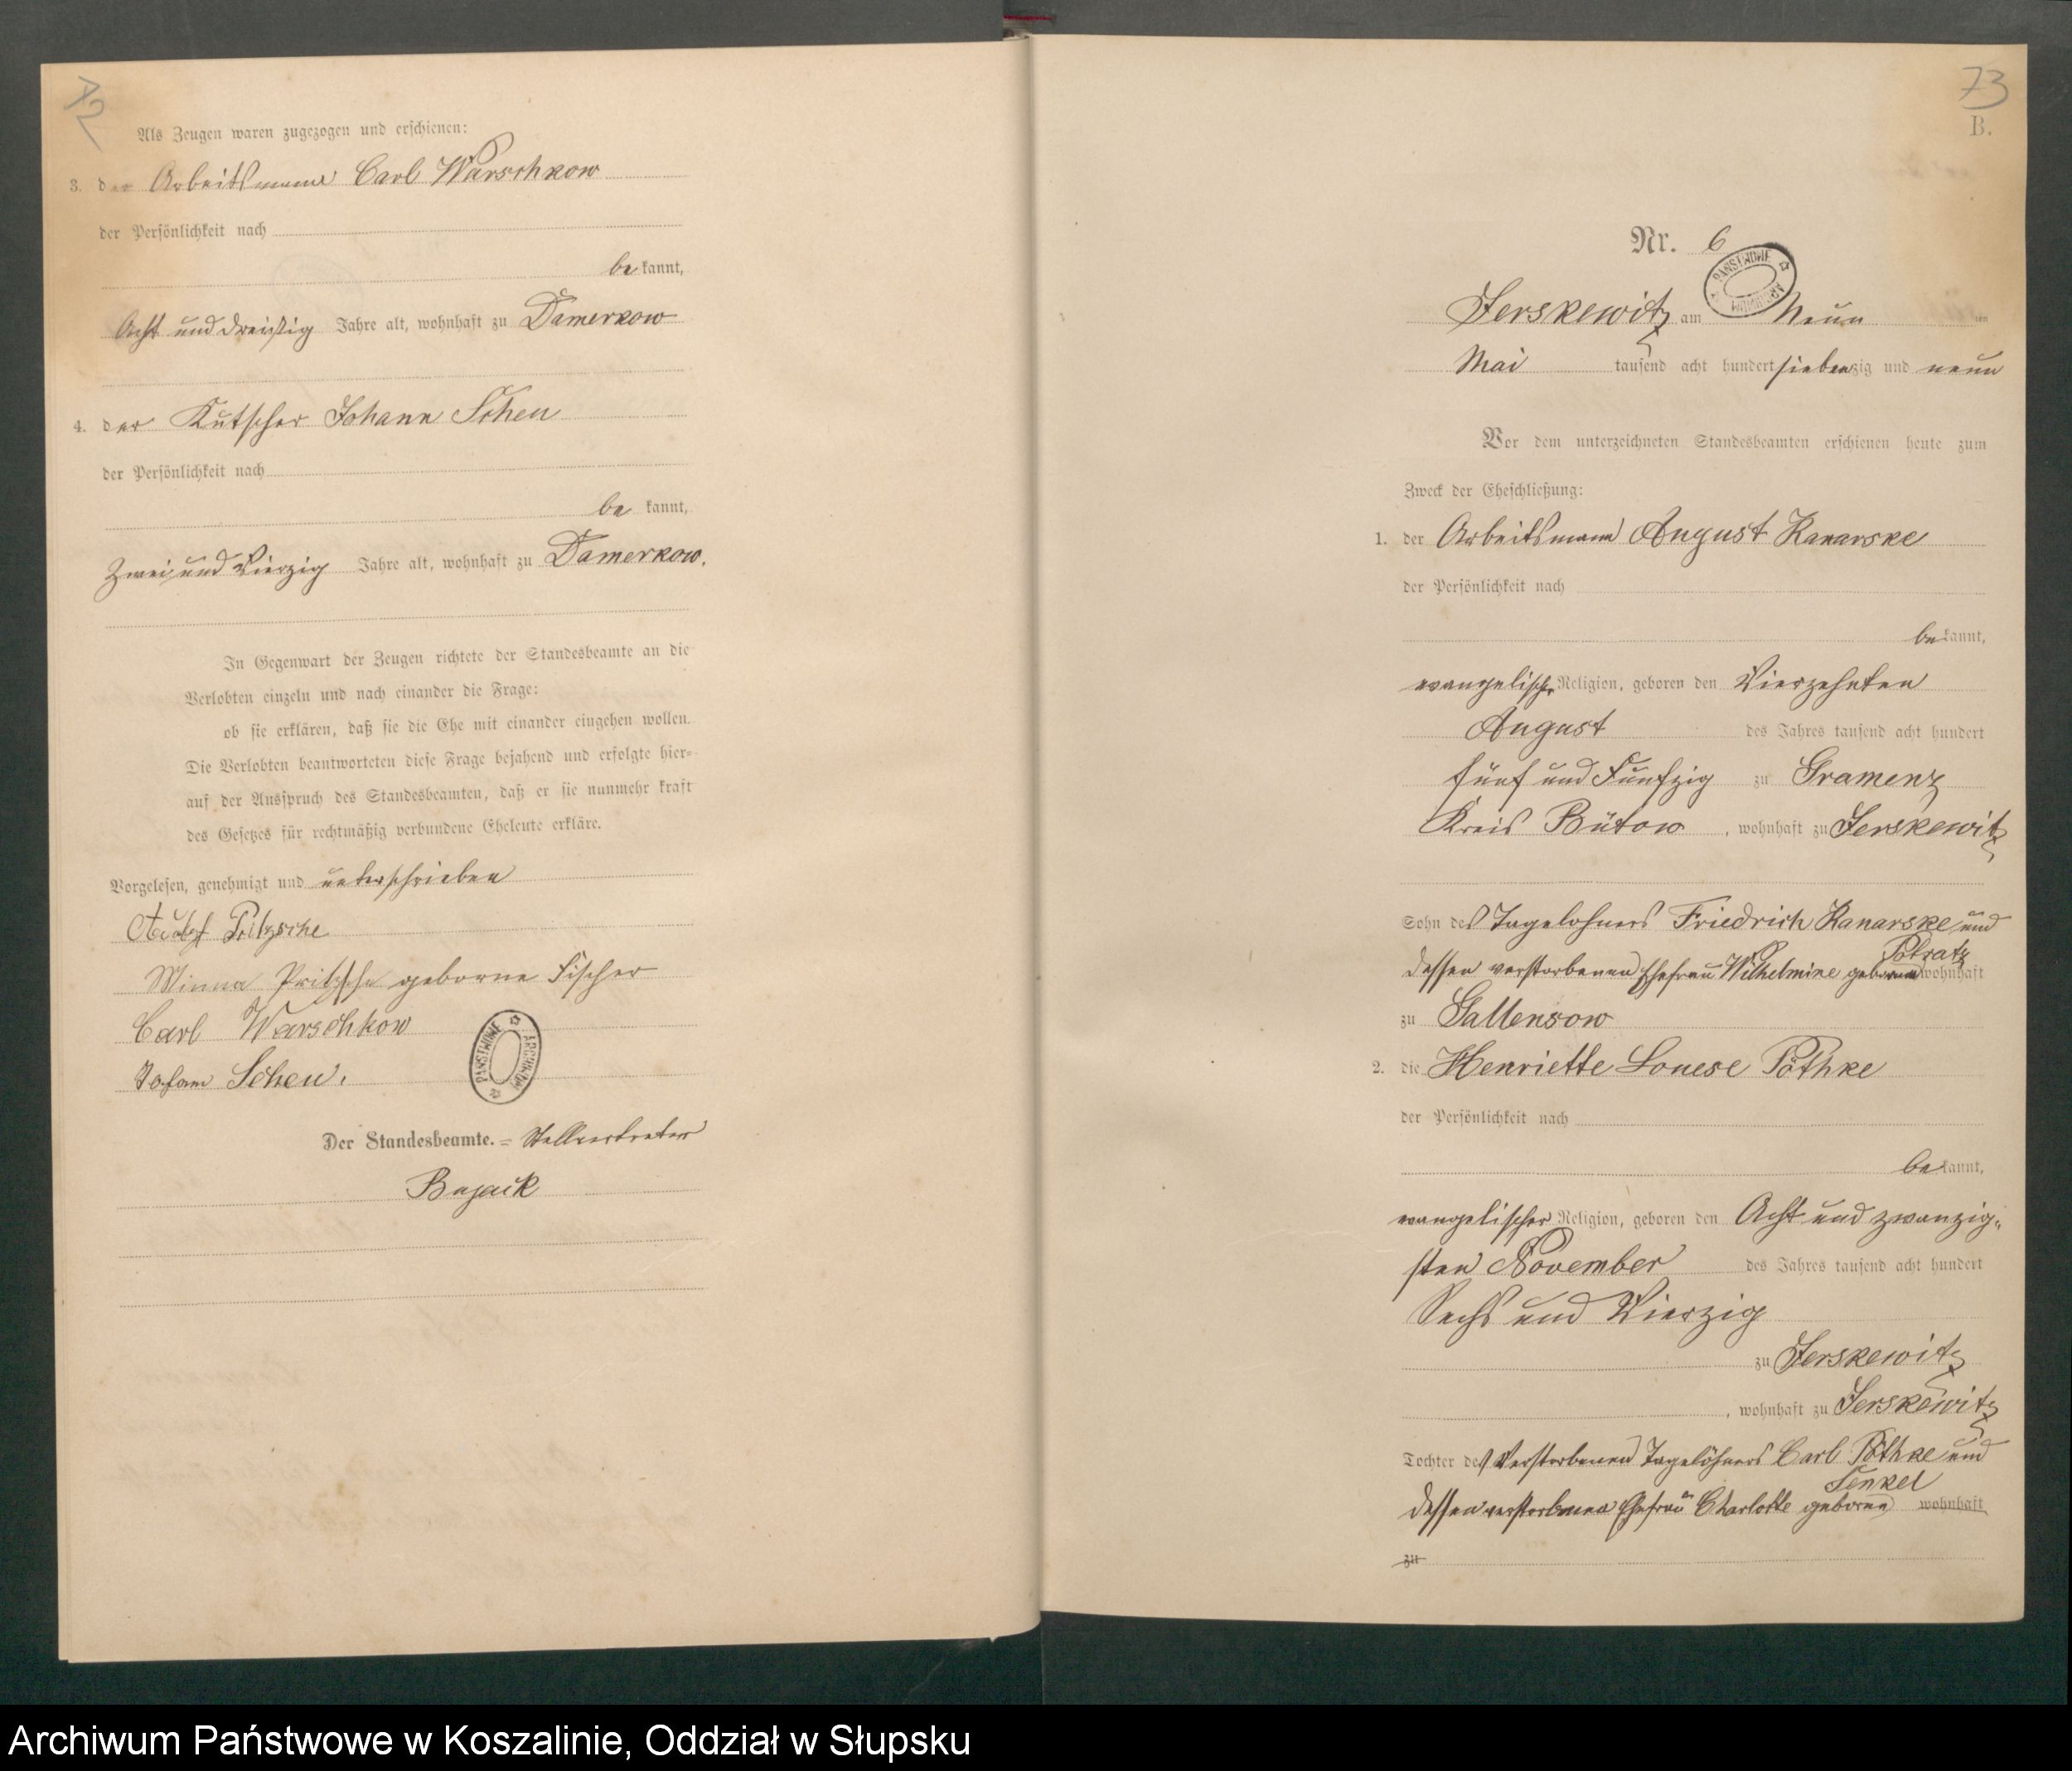 72
Als Zeugen waren zugezogen und erschienen:
3. der Arbeitsmann Carl Warschkow
der Persönlichkeit nach
be kannt,
Acht und dreißig Jahre alt, wohnhaft zu Damerkow
4. der Kutscher Johann Scheu
der Persönlichkeit nach
be kannt,
Zwei und Vierzig Jahre alt, wohnhaft zu Damerkow.
In Gegenwart der Zeugen richtete der Standesbeamte an die
Verlobten einzeln und nach einander die Frage:
ob sie erklären, daß sie die Ehe mit einander eingehen wollen.
Die Verlobten beantworteten diese Frage bejahend und erfolgte hier-
auf der Ausspruch des Standesbeamten, daß er sie nunmehr kraft
des Gesetzes für rechtmäßig verbundene Eheleute erkläre.
Vorgelesen, genehmigt und unterschrieben
Minna Pritzsche geborne Fischer
Carl Warschkow
Johann Scheu.
PAŃSTWOWE ARCHIWUM
Der Standesbeamte. = Stellvertreter
Bajack
73
B.
Nr. 6
PAŃSTWOWE ARCHIWUM
Jerskewitz am Neun ten
Mai tausend acht hundert siebenzig und neun
Vor dem unterzeichneten Standesbeamten erschienen heute zum
Zweck der Eheschließung:
1. der Arbeitsmann August Kanarske
der Persönlichkeit nach
be kannt,
evangelischer Religion, geboren den Vierzehnten
August des Jahres tausend acht hundert
fünf und Fünfzig zu Gramenz
Kreis Bütow, wohnhaft zu Jerskewitz
Sohn des Tagelohners Friedrich Kanarske und
Potratz
dessen verstorbenen Ehefrau Wilhelmine geborene wohnhaft
zu Gallensow
2. die Henriette Louese Pöthke
der Persönlichkeit nach
be kannt,
evangelischer Religion, geboren den Acht und zwanzig-
sten November des Jahres tausend acht hundert
Sechs und Vierzig
zu Jerskewitz
, wohnhaft zu Jerskewitz
Tochter des Verstorbenen Tagelöhners Carl Pöthke und
dessen verstorbenen Ehefrau Charlotte geborene wohnhaft
zu
Archiwum Państwowe w Koszalinie, Oddział w Słupsku